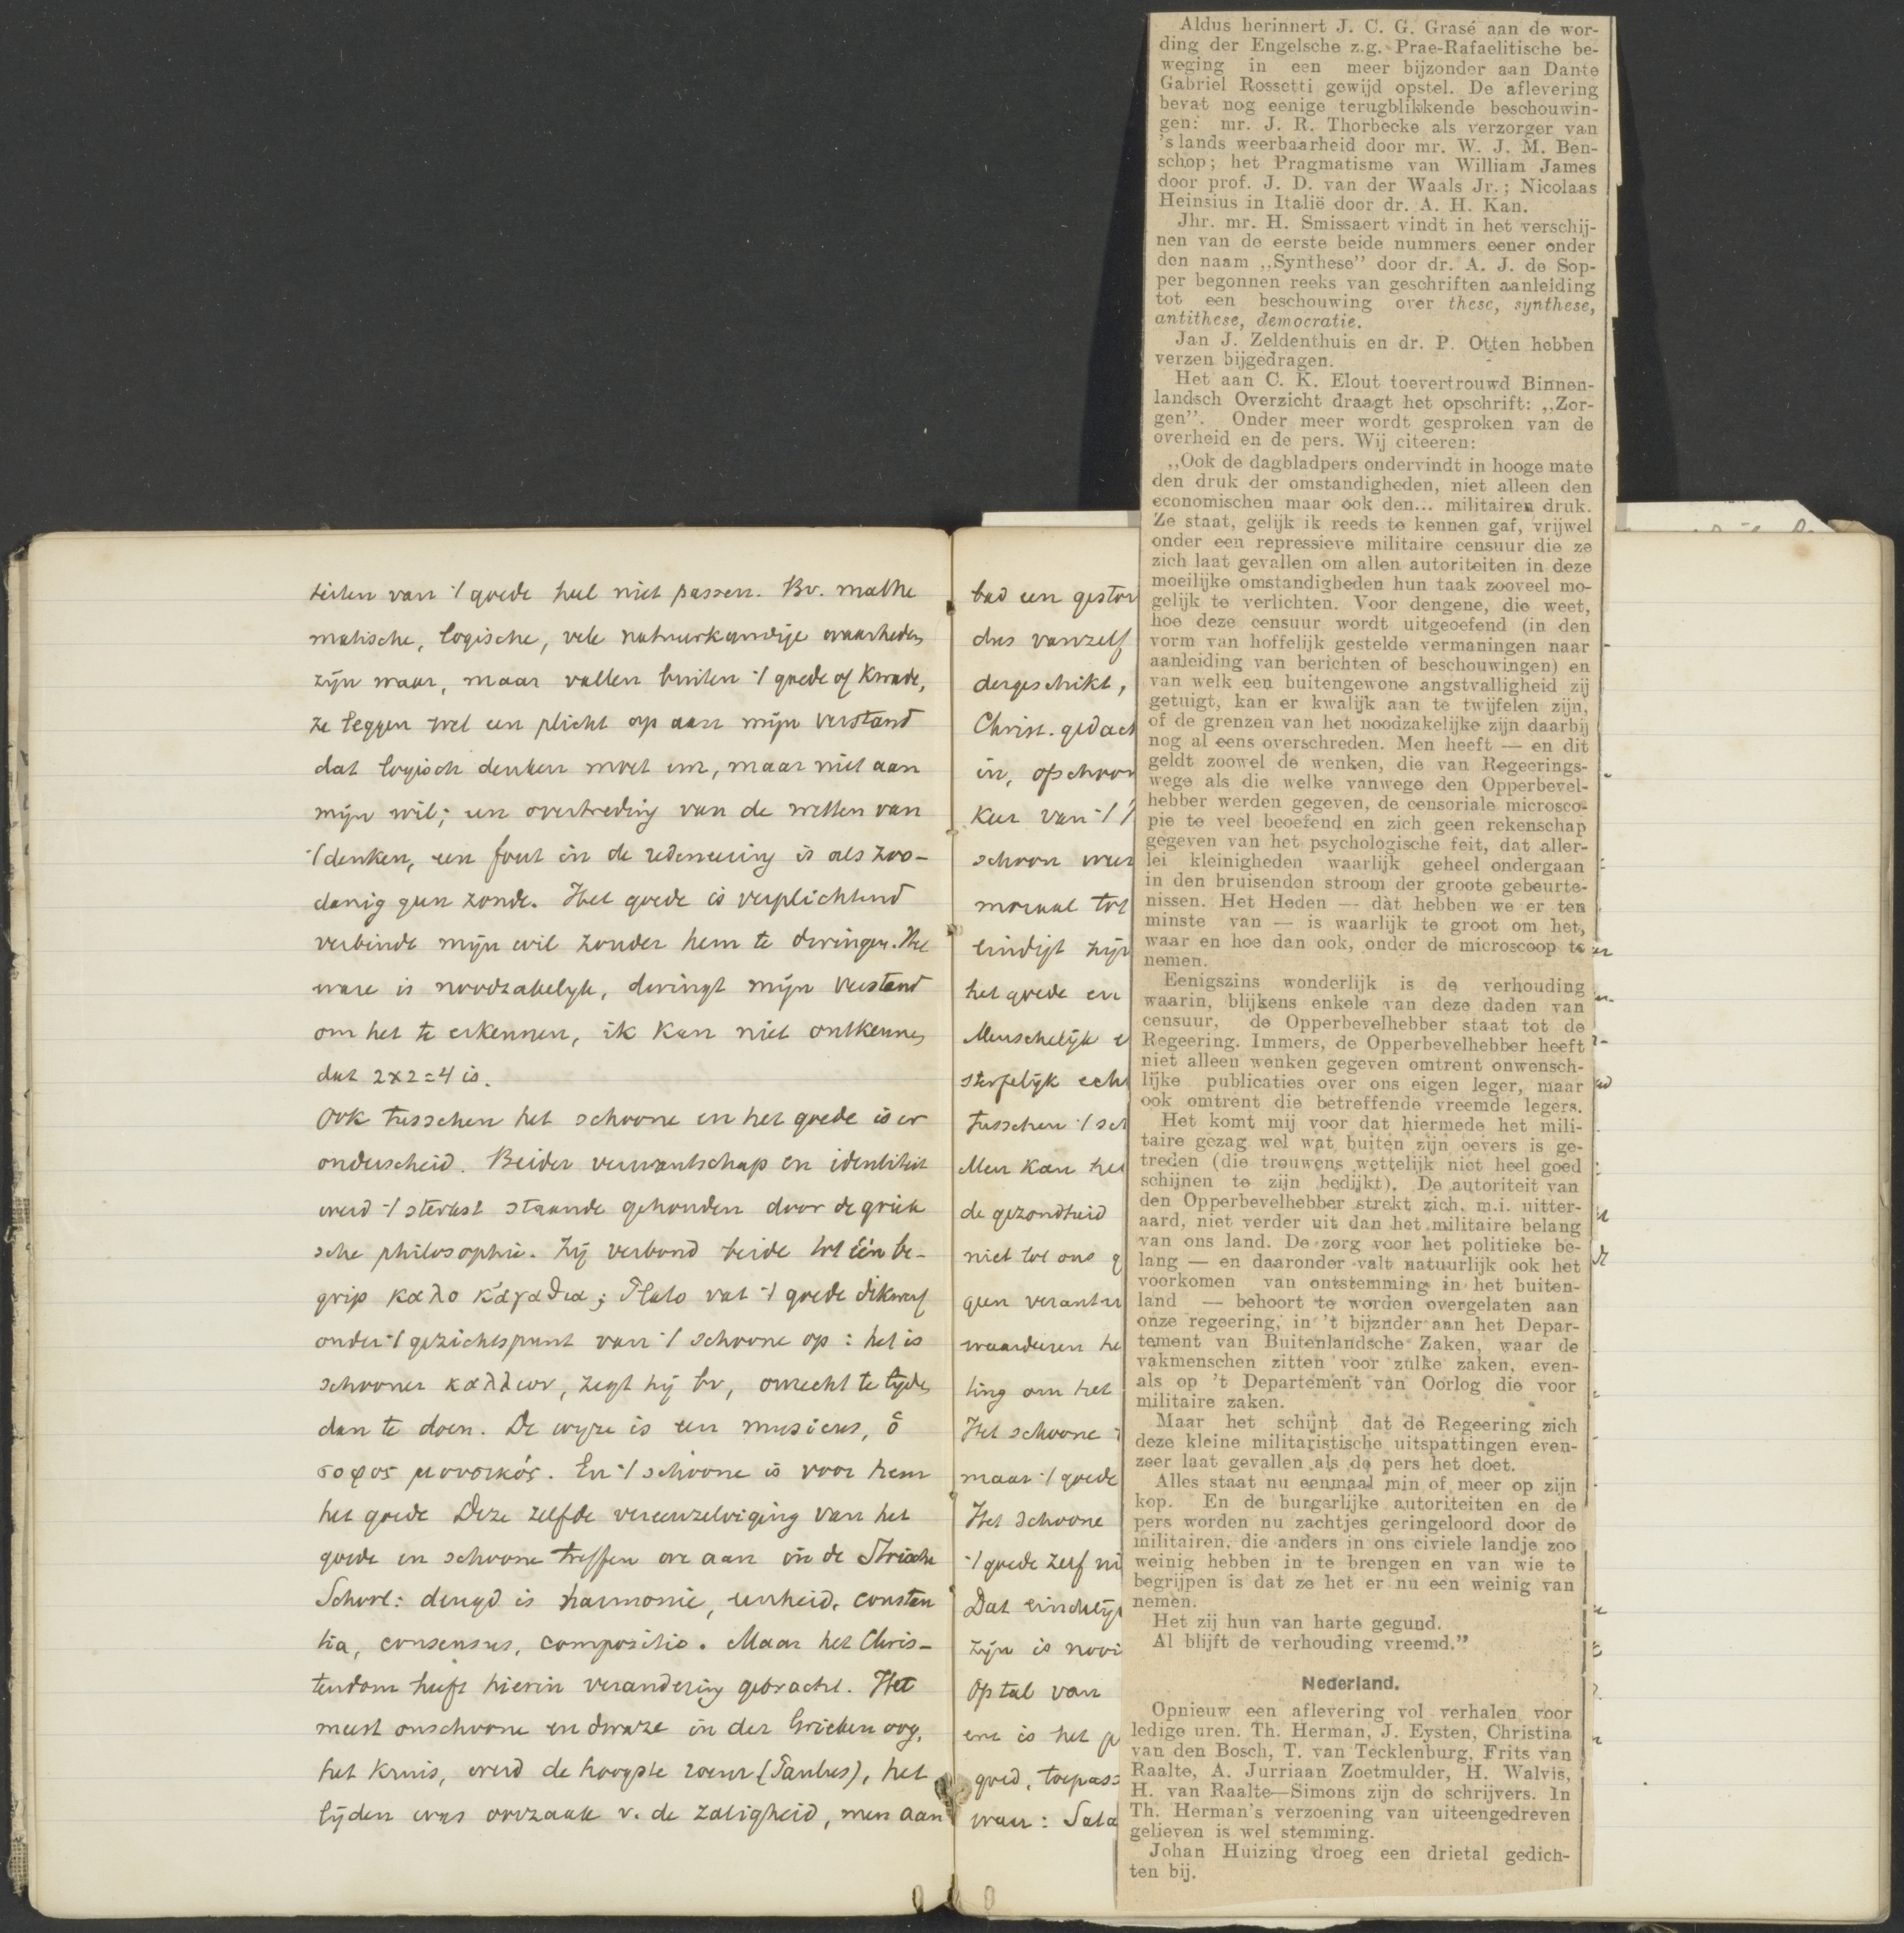 teiten van 't goede heel niet passen. Bv. mathe
matische, logische, vele natuurkundige waarheden
zijn waar, maar vallen buiten 't goede of kwade,
ze leggen wel een plicht op aan mijn verstand
dat logisch denken moet enz, maar niet aan
mijn wil; een overtreding van de wetten van
't denken, een fout in de redeneering is als zoo-
danig geen zonde. Het goede is verplichtend
verbindt mijn wil zonder hem te dwingen. Het
ware is noodzakelijk, dwingt mijn verstand
om het te erkennen, ik kan niet ontkennen
dat 2x2=4 is.
Ook tusschen het schoone en het goede is er
onderscheid. Beider verwantschap en identiteit
werd 't sterkst staande gehouden door de griek
sche philosophie. Zij verbond beide tot één be-
grip καλο κἀγαθια; Plato vat 't goede dikwerf
onder 't gezichtspunt van 't schoone op: het is
schooner καλλιον, zegt hij bv, onrecht te lijden
dan te doen. De wijze is een musicus, ὁ
σοφος μουσικός. En 't schoone is voor hem
het goede Deze zelfde vereenzelviging van het
goede en schoone treffen we aan in de Stoische
School: deugd is harmonie, eenheid, constan
tia, consensus, compositio. Maar het Chris-
tendom heeft hierin verandering gebracht. Het
meest onschoone en dwaze in der Grieken oog,
het kruis, werd de hoogste roem (Paulus), het
lijden was oorzaak v. de zaligheid, men aan
bad een gestor
dus vanzelf
dergeschikt,
Christ. gedach
in, opschoon
keer van 't
schoon
moraal tot
eindigt zijn
het goede en
Menschelijk e
sterfelijk ech
tusschen 't sch
Men kan he
de gezondheid
niet tot ons g
geen verantw
waardeeren he
ling om het
Het schoone
maar 't goede
Het schoone
't goede zelf ni
Dat eindelijk
zijn is nooi
Optal van
ene is het
goed, toepass
waar: Sata
Aldus herinnert J. C. G. Grasé aan de wor-
ding der Engelsche z.g. Prae-Rafaelitische be-
weging in een meer bijzonder aan Dante
Gabriel Rossetti gewijd opstel. De aflevering
bevat nog eenige terugblikkende beschouwin-
gen: mr. J. R. Thorbecke als verzorger van
's lands weerbaarheid door mr. W. J. M. Ben-
schop; het Pragmatisme van William James
door prof. J. D. van der Waals Jr.; Nicolaas
Heinsius in Italië door dr. A. H. Kan.
Jhr. mr. H. Smissaert vindt in het verschij-
nen van de eerste beide nummers eener onder
den naam ,,Synthese" door dr. A. J. de Sop-
per begonnen reeks van geschriften aanleiding
tot een beschouwing over these, synthese,
antithese, democratie.
Jan J. Zeldenthuis en dr. P. Otten hebben
verzen bijgedragen.
Het aan C. K. Elout toevertrouwd Binnen-
landsch Overzicht draagt het opschrift: ,,Zor-
gen". Onder meer wordt gesproken van de
overheid en de pers. Wij citeeren:
,,Ook de dagbladpers ondervindt in hooge mate
den druk der omstandigheden, niet alleen den
economischen maar ook den... militairen druk.
Ze staat, gelijk ik reeds te kennen gaf, vrijwel
onder een repressieve militaire censuur die ze
zich laat gevallen om allen autoriteiten in deze
moeilijke omstandigheden hun taak zooveel mo-
gelijk te verlichten. Voor dengene, die weet,
hoe deze censuur wordt uitgeoefend (in den
vorm van hoffelijk gestelde vermaningen naar
aanleiding van berichten of beschouwingen) en
van welk een buitengewone angstvalligheid zij
getuigt, kan er kwalijk aan te twijfelen zijn,
of de grenzen van het noodzakelijke zijn daarbij
nog al eens overschreden. Men heeft — en dit
geldt zoowel de wenken, die van Regeerings-
wege als die welke vanwege den Opperbevel-
hebber werden gegeven, de censoriale microsco-
pie te veel beoefend en zich geen rekenschap
gegeven van het psychologische feit, dat aller-
lei kleinigheden waarlijk geheel ondergaan
in den bruisenden stroom der groote gebeurte-
nissen. Het Heden — dàt hebben we er ten
minste van — is waarlijk te groot om het,
waar en hoe dan ook, onder de microscoop te
nemen.
Eenigszins wonderlijk is de verhouding
waarin, blijkens enkele van deze daden van
censuur, de Opperbevelhebber staat tot de
Regeering. Immers, de Opperbevelhebber heeft
niet alleen wenken gegeven omtrent onwensch-
lijke publicaties over ons eigen leger, maar
ook omtrent die betreffende vreemde legers.
Het komt mij voor dat hiermede het mili-
taire gezag wel wat buiten zijn oevers is ge-
treden (die trouwens wettelijk niet heel goed
schijnen te zijn bedijkt). De autoriteit van
den Opperbevelhebber strekt zich, m.i. uitter-
aard, niet verder uit dan het militaire belang
van ons land. De zorg voor het politieke be-
lang — en daaronder valt natuurlijk ook het
voorkomen van ontstemming in het buiten-
land — behoort te worden overgelaten aan
onze regeering, in 't bijznder aan het Depar-
tement van Buitenlandsche Zaken, waar de
vakmenschen zitten voor zulke zaken, even-
als op 't Departement van Oorlog die voor
militaire zaken.
Maar het schijnt dat de Regeering zich
deze kleine militaristische uitspattingen even-
zeer laat gevallen als de pers het doet.
Alles staat nu eenmaal min of meer op zijn
kop. En de burgarlijke autoriteiten en de
pers worden nu zachtjes geringeloord door de
militairen, die anders in ons civiele landje zoo
weinig hebben in te brengen en van wie te
begrijpen is dat ze het er nu een weinig van
nemen.
Het zij hun van harte gegund.
Al blijft de verhouding vreemd."
Nederland.
Opnieuw een aflevering vol verhalen voor
ledige uren. Th. Herman, J. Eysten, Christina
van den Bosch, T. van Tecklenburg, Frits van
Raalte, A. Jurriaan Zoetmulder, H. Walvis,
H. van Raalte—Simons zijn de schrijvers. In
Th. Herman's verzoening van uiteengedreven
gelieven is wel stemming.
Johan Huizing droeg een drietal gedich-
ten bij.